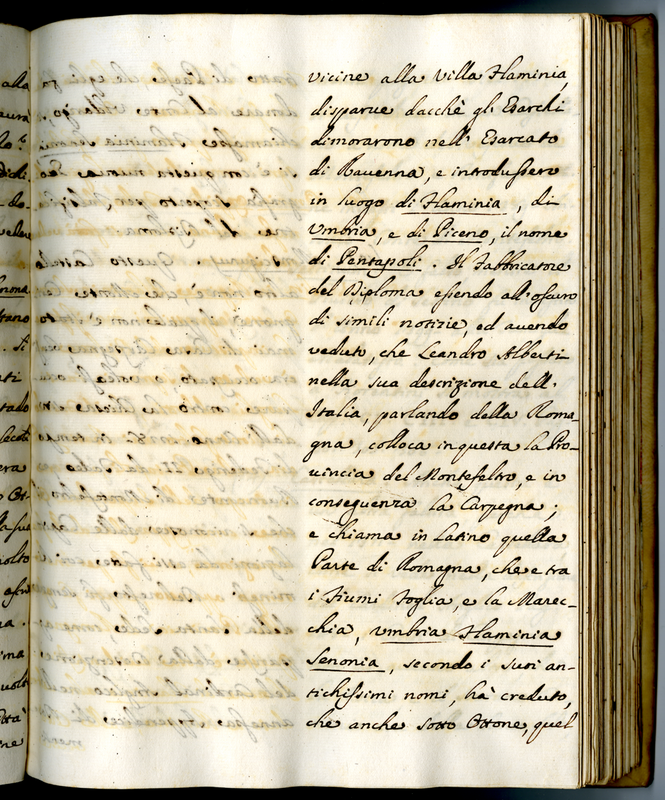 vicine alla villa Flaminia,
disparve dacchè gl. Esarchi
dimorarono nell' Esarcato
di Ravenna, e introdussero
in luogo di Flaminia, di
Vmbria, e di Piceno, il nome
di Pentapoli. Il Fabbricatore
del Diploma essendo all'oscuro
di simili notizie, ed avendo
veduto, che Leandro Alberti
nella sua descrizione dell'
Italia, parlando della Roma-
gna, colloca in questa la Pro-
vincia del Montefeltro, e in
conseguenza la Carpegna;
e chiama in Latino quella
Parte di Romagna, che e tra
i Fiumi Foglia, e la Marec-
chia, Vmbria Flaminia
Senonia, secondo i suoi an-
tichissimi nomi, hà creduto,
che anche sotto Ottone, quel